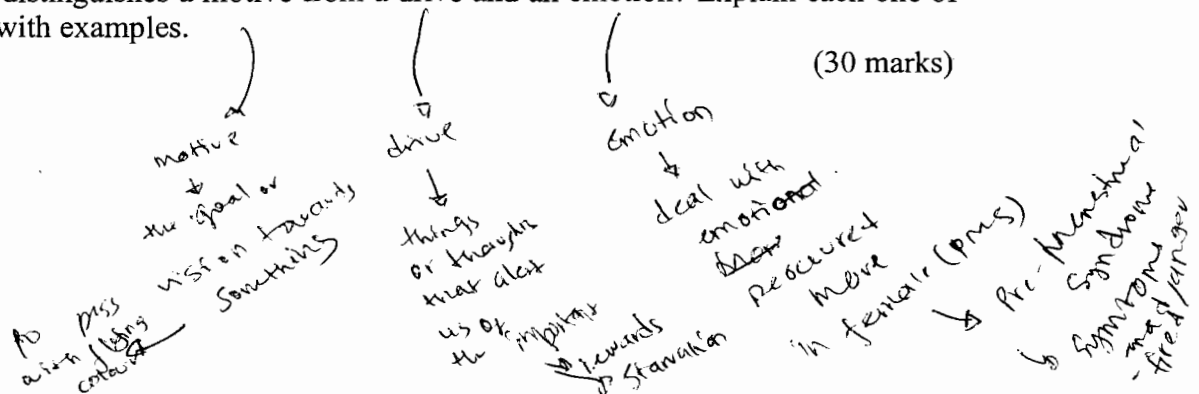 distinguishes a motive from a drive and an emotion? Explain each one of
with examples.
(30 marks)
mottive
the goal or
vision towards
something
to pass
with flying
colour
drive
things
or thought
that alert
us of
the important
rewards
starvation
emotion
deal with
emotional
more
in female (PMS)
Pre-menstrual
Syndrome
symptoms
- tired/anger